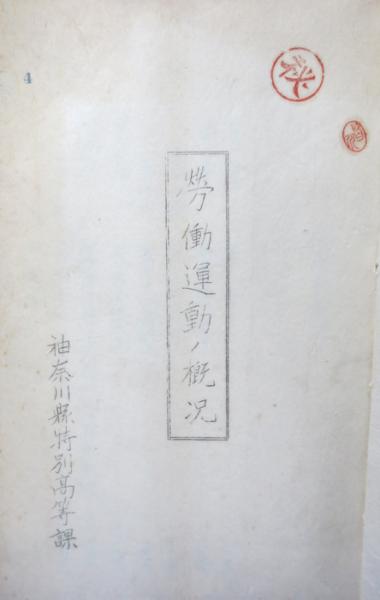 秘
4
勞働運動ノ概況
神奈川縣特別高等課